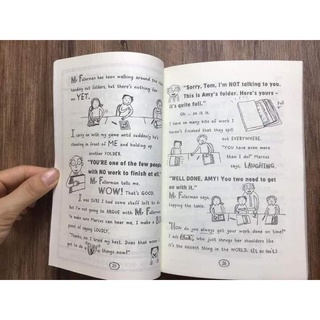 Mr Fullerman has been walking around the
handing out folders, but there's nothing for
me YET.
I carry on with my game until suddenly he's
standing in front of ME and holding up
another FOLDER.
"YOU'RE one of the few people
with NO work to finish at all."
Mr Fullerman tells me.
WOW! That's GOOD.
I was SURE I had some stuff left to do
but I'm not going to ARGUE with Mr Fullerman
to make sure Marcus can hear me, I make a BIG
point of saying LOUDLY.
"Thanks, Sir, I tried my best. Does that mean
get to do things now?"
"Sorry, Tom, I'm NOT talking to you.
This is Amy's folder. Here's yours -
it's quite full."
Oh
so it is.
I have so many bits of work I
haven't finished that they spill
out EVERYWHERE.
"You have even more
than I do!" Marcus
says, LAUGHING.
"WELL DONE, AMY! You two need to get
on with it,"
Mr Fullerman says,
tapping the table.
"How do you always get your work done on time?"
I ask who just shrugs her shoulders like
it's the easiest thing in the WORLD.